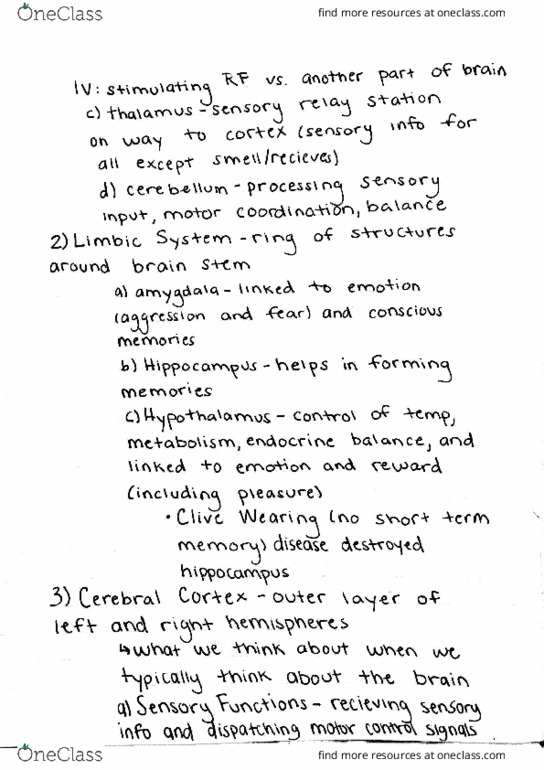 OneClass
find more resources at oneclass.com
IV: stimulating RF vs. another part of brain
c) thalamus - sensory relay station
on way to cortex (sensory info for
all except smell/recieves)
d) cerebellum - processing sensory
input, motor coordination, balance
2) Limbic System - ring of structures
around brain stem
a) amygdala - linked to emotion
(aggression and fear) and conscious
memories
b) Hippocampus - helps in forming
memories
c) Hypothalamus - control of temp,
metabolism, endocrine balance, and
linked to emotion and reward
(including pleasure)
• Clive Wearing (no short term
memory) disease destroyed
hippocampus
3) Cerebral Cortex - outer layer of
left and right hemispheres
↳ what we think about when we
typically think about the brain
a) Sensory Functions - recieving sensory
info and dispatching motor control signals
OneClass
find more resources at oneclass.com